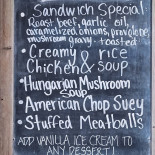 Sandwich Special
Roast beef, garlic oil,
caramelized onions, provolone,
mushroom gravy - toasted
• Creamy rice
Chicken & soup
• Hungarian Mushroom
soup
• American Chop Suey
• Stuffed Meatballs
ADD VANILLA ICE CREAM TO
ANY DESSERT!